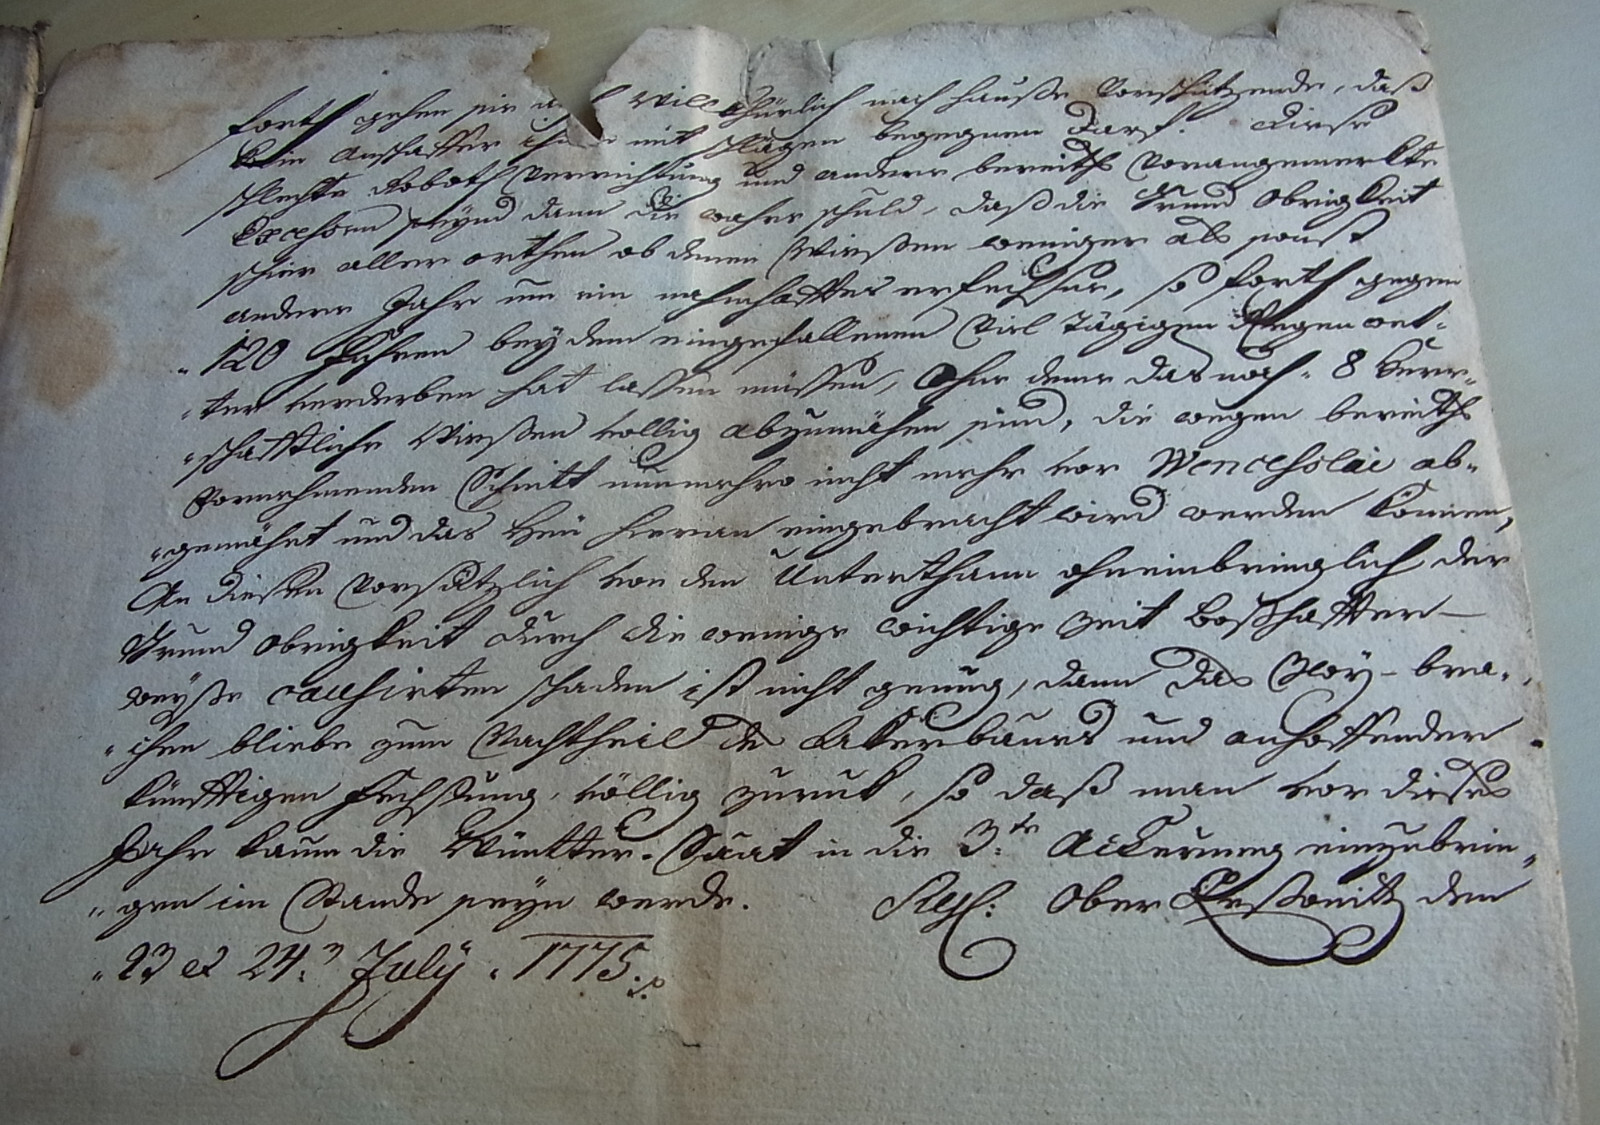 forth gehen sie auch willkührlich nach hausse vorschützende, daß
kein Anschaffer ihnen mit schlägen begegnen darf. Diese
schlechte Roboth Verrichtung und andere bereiths vorangemerkte
Excessen seynd dann die wahre schuld, daß die Grund Obrigkeit
schier aller orthen ob denen Wiessen weniger als sonst
andere Jahr um ein nahmhafftes erfechsne, so forth gegen
120 Fuhren bey dem eingefallenen viel tägigen Regen wet-
ter verderben hat lassen müssen, Ohne deme das noch 8 herr-
schafftliche Wiessen völlig abzumähen sind, die wegen bereiths
vornehmenden Schnitt nunmehro nicht mehr vor Wenceslai ab-
gemähet und das Heü hievon eingebracht wird werden können,
An diesen vorsätzlich von den Unterthann ohneinbringlich der
Grund Obrigkeit durch die wenige wichtige Zeit boßhaffter
weyse causirten schaden ist nicht genüg, dann das bra-
chen bliebe zum Nachtheil des Ackerbaues und anhoffender
künfftigen Fechssung, völlig zuruk, so daß man vor dieses
Jahr kaum die Wintter-Saat in die 3te Ackerung einzubrin-
gen im Stande seyn werde. Ober den
23 et 24n July 1775.